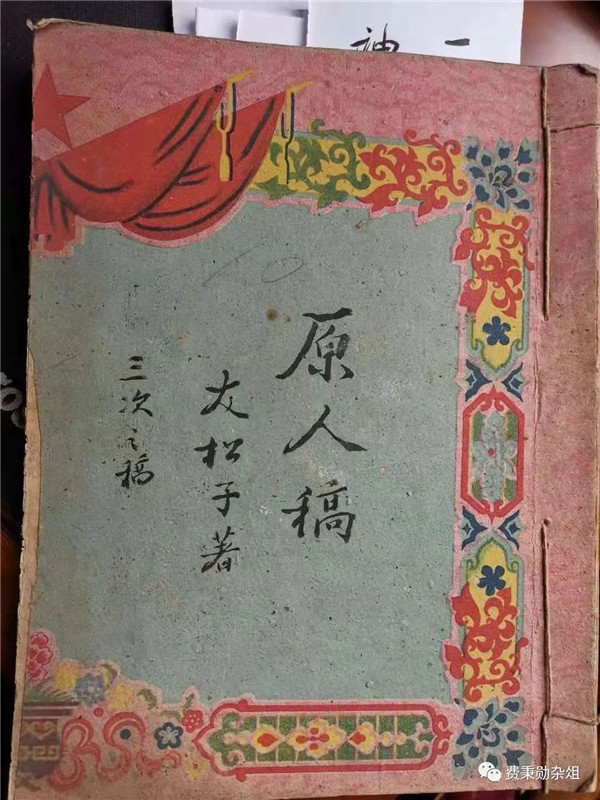 原人稿
友松子著
三次之稿
费秉勋杂俎